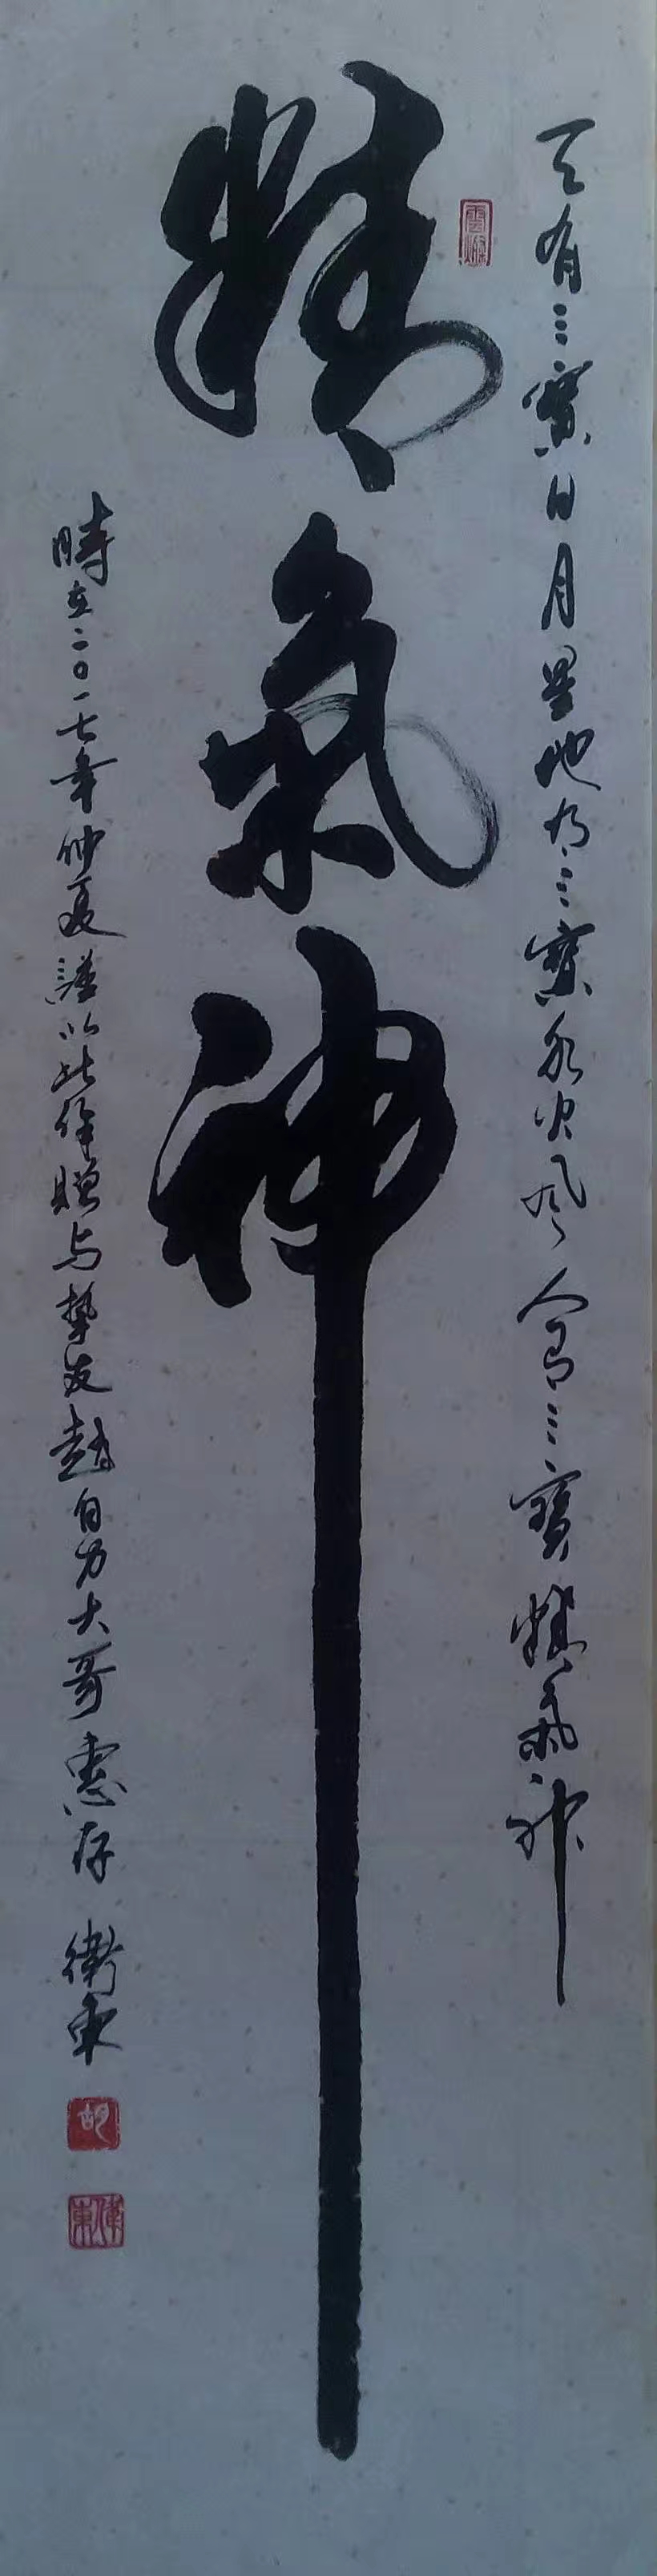 天有三寳日月星地有三寳水火风人有三寳精氣神
精氣神
時在二〇一七年仲夏謹以此作贈与摯友趙自力大哥惠存 衛東
胡